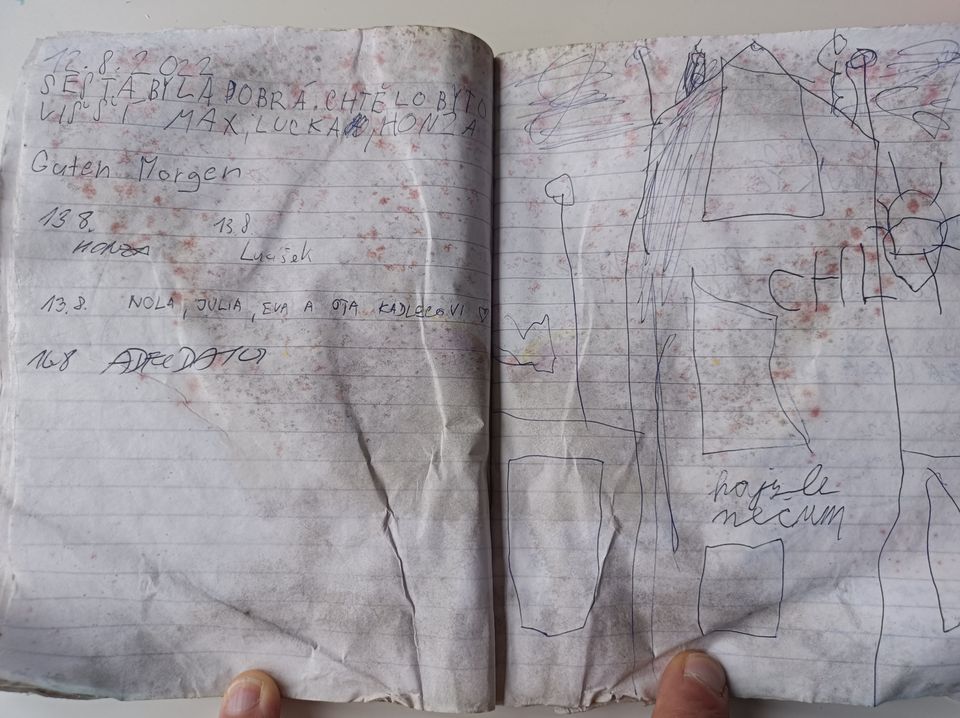 12.8.2022
SEŠTA BYLA DOBRÁ. CHTĚLO BYTO
VIŠŠÍ MAX, LUCKA, HONZA
Guten Morgen
13.8. 13.8
HONZA Lucišek
13.8. NOLA, JULIA, EVA A OTA KADLECOVI ♡
16.8
CHIL
hajzle
nečum